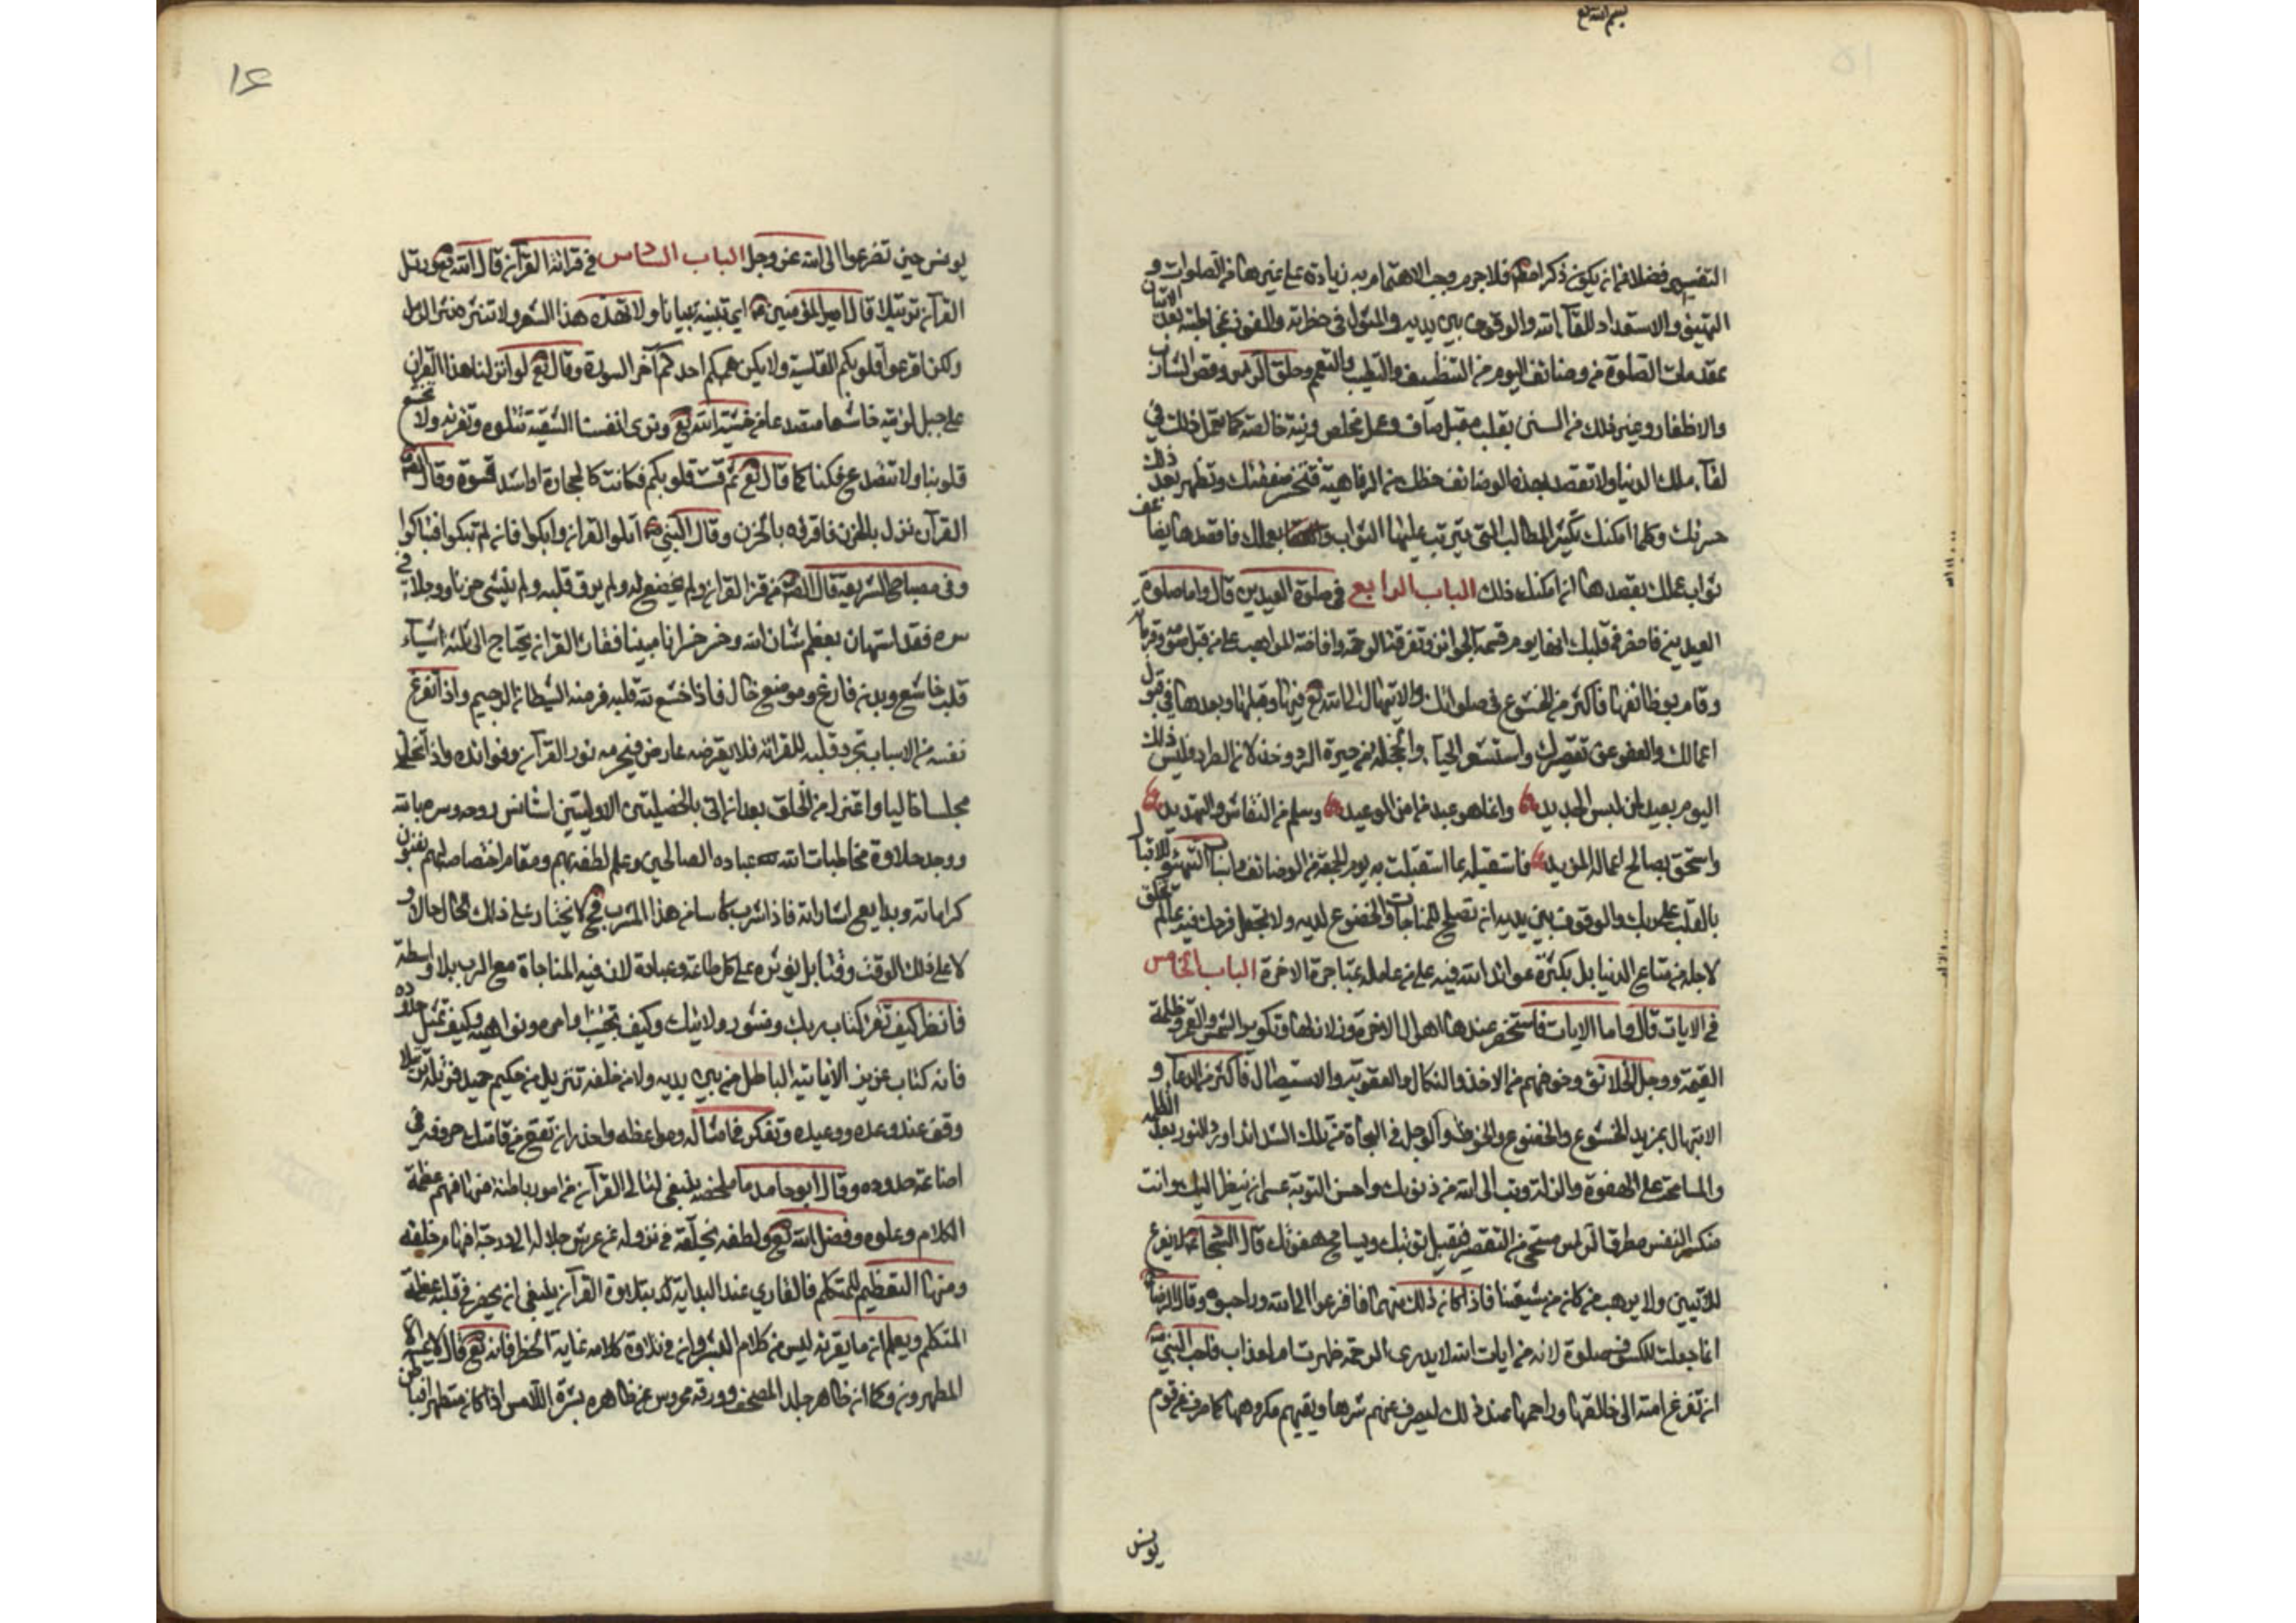 بسم الله تع
التفسير فضلا من ان يكون ذكرا معظم فلا جرم وجب الاهتمام به زيادة على غيرها من الصلوات و
التهيؤ والاستعداد للقاء الله والوقوف بين يديه والمثول في حضرته والفوز بمخاطبته بعد الاتيان
بمقدمات الصلوة من وضائف اليوم من التنظيف والتطيب والتعمم وحلق الراس وقص الشارب
والاظفار وغير ذلك من السنن بقلب مقبل صاف وعمل مخلص ونية خالصة كما تعمل ذلك في
لقاء ملك الدنيا ولا تقصد بهذه الوضائف حظك من الرفاهية فتخسر صفقتك وتظهر بعد ذلك
حسرتك وكلما امكنك تكثير المطالب التي يترتب عليها الثواب بعملك فاقصدها يضاعف
ثواب عملك بقصدها ان امكنك ذلك الباب الرابع في صلوة العيدين قال واما صلوة
العيدين فاحضر في قلبك انها يوم قسمة الجوائز وتفرقة الرحمة وافاضة المواهب على من قبل صومه وقربانه
وقام بوظائفها فاكثر من الخشوع في صلواتك والابتهال الى الله تع فيها وقبلها وبعدها في قبول
اعمالك والعفو عن تقصيرك واستشعر الحياء والخجلة من حيرة الرد وخذلان الطرد وليس ذلك
اليوم بعيد لمن لبس الجديد وانما هو عيد لمن امن الوعيد وسلم من النقاش والتهديد
واستحق بصالح اعماله المزيد فاستقبله بما استقبلت به يوم الجمعة من الوضائف واسباب التهيؤ والاقبال
بالقلب على ربك والوقوف بين يديه ان تصلح للمناجات والخضوع لديه ولا تجعل فرحك فيه بما لم تخلق
لاجله من متاع الدنيا بل بكثرة عوائد الله فيه على من عامله بمتاجرة الاخرة الباب الخامس
في الايات قال واما الايات فاستحضر عندها اهوال الاخرة وزلازلها وتكوير الشمس والقمر وظلمة
القيمة ووجل الخلائق وخوفهم من الاخذ والنكال والعقوبة والاستيصال فاكثر من الدعاء و
الابتهال بمزيد الخشوع والخضوع والخوف والوجل في النجاة من تلك الشدائد ورد النور بعد الظلمة
والمسامحة على الهفوة والزلة وتب الى الله من ذنوبك واحسن التوبة عسى ان ينظر اليك وانت
منكسر النفس مطرق الراس مستحي من التقصير فيقبل توبتك ويسامح هفوتك قال السجاد لا يفزع
للايتين ولا يرهب من كان من شيعتنا فاذا كان ذلك منهما فافزعوا الى الله وراجعوه وقال الرضا
انما جعلت للكسوف صلوة لانه من ايات الله لا يدرى الرحمة ظهرت ام لعذاب فاحب النبي
ان تفزع امته الى خالقها وراحمها عند ذلك ليصرف عنهم شرها ويقيهم مكروهها كما صرف عن قوم
يونس
١٦
يونس حين تضرعوا الى الله عز وجل الباب السادس في قرائة القرآن قال الله تع ورتل
القرآن ترتيلا قال امير المؤمنين اي تبينه تبيانا ولا تهذه هذ الشعر ولا تنثره نثر الرمل
ولكن اقرعوا قلوبكم القاسية ولا يكن هم احدكم آخر السورة وقال تع لو انزلنا هذا القران
على جبل لرأيته خاشعا متصدعا من خشية الله تع وترى انفسنا الشقية تتلوه وتقرئه ولا تخشع
قلوبنا ولا تتصدع فكنا كما قال تع ثم قست قلوبكم فكانت كالحجارة او اشد قسوة وقال
القرآن نزل بالحزن فاقرئه بالحزن وقال النبي اتلوا القران وابكوا فان لم تبكوا فتباكوا
وفي مصباح الشريعة قال الصم من قرء القران ولم يخضع له ولم يرق قلبه ولم ينشئ حزنا ووجلا في
سره فقد استهان بعظم شان الله وخسر خسرانا مبينا فقارئ القران يحتاج الى ثلثة اشياء
قلب خاشع وبدن فارغ وموضع خال فاذا خشع لله قلبه فر منه الشيطان الرجيم واذا تفرغ
نفسه من الاسباب تجرد قلبه للقرائة فلا يعرضه عارض فيحرمه نور القرآن وفوائده واذا اتخذ
مجلسا خاليا واعتزل من الخلق بعد ان اتى بالخصلتين الاوليتين استانس روحه وسره بالله
ووجد حلاوة مخاطبات الله عباده الصالحين وعلم لطفه بهم ومقام اختصاصه لهم بفنون
كراماته وبدايع اشاراته فاذا شرب كاسا من هذا المشرب فح لا يختار على ذلك الحال حالا و
لا على ذلك الوقت وقتا بل يؤثره على كل طاعة وعبادة لان فيه المناجاة مع الرب بلا واسطة
فانظر كيف تقرء كتاب ربك ومنشور ولايتك وكيف تجيب اوامره ونواهيه وكيف تمتثل حدوده
فانه كتاب عزيز لا ياتيه الباطل من بين يديه ولا من خلفه تنزيل من حكيم حميد فرتله ترتيلا
وقف عند وعده ووعيده وتفكر في امثاله ومواعظه واحذر ان تقع من اقامتك حروفه في
اضاعة حدوده وقال ابو حامد ما ملخصه ينبغي لتالي القرآن من امور باطنة منها فهم عظمة
الكلام وعلوه وفضل الله تع ولطفه بخلقه في نزوله عن عرش جلاله الى درجة افهام خلقه
ومنها التعظيم للمتكلم فالقاري عند البداية بتلاوة القرآن ينبغي ان يحضر في قلبه عظمة
المتكلم ويعلم ان ما يقرئه ليس من كلام البشر وان في تلاوة كلامه غاية الخطر فانه تع قال لا يمسه الا
المطهرون وكما ان ظاهر جلد المصحف وورقه محروس عن ظاهره بشرة اللامس الا اذا كان متطهرا فباطن